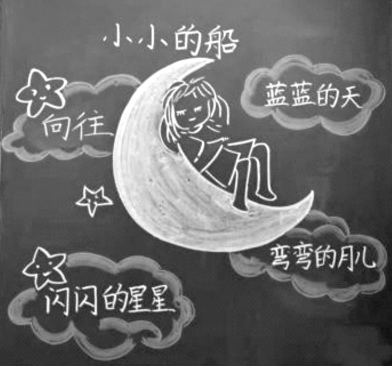 小小的船
蓝蓝的天
向往
弯弯的月儿
闪闪的星星